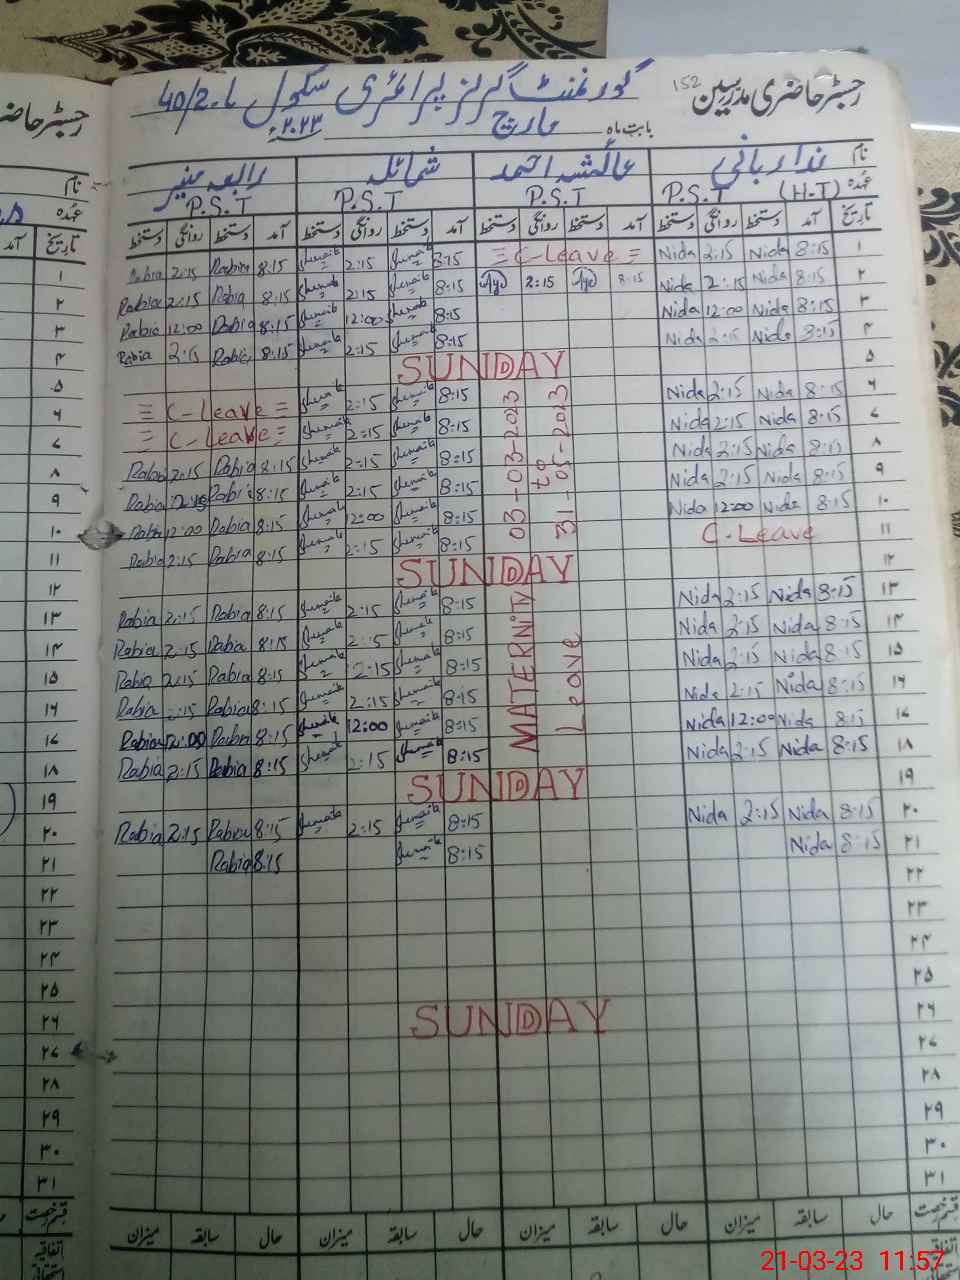 رجسٹر حاضری مدرسین 152 گورنمنٹ گرلز پرائمری سکول 40/2.L
بابت ماہ مارچ ۲۰۲۳ء
نام ندا ربانی عائشہ احمد شمائلہ رابعہ منیر
عہدہ P.S.T (H.T) P.S.T P.S.T P.S.T
تاریخ آمد دستخط روانگی دستخط آمد دستخط روانگی دستخط آمد دستخط روانگی دستخط آمد دستخط روانگی دستخط
۱ 8:15 Nida 2:15 Nida C-Leave 8:15 2:15 8:15 Rabia 2:15 Rabia
۲ 8:15 Nida 2:15 Nida 8:15 2:15 8:15 2:15 8:15 Rabia 2:15 Rabia
۳ 8:15 Nida 12:00 Nida 8:15 12:00 8:15 Rabia 12:00 Rabia
۴ 8:15 Nida 2:15 Nida 8:15 2:15 8:15 Rabia 2:15 Rabia
۵ SUNDAY
۶ 8:15 Nida 2:15 Nida 8:15 2:15 C-Leave
۷ 8:15 Nida 2:15 Nida 8:15 2:15 C-Leave
۸ 8:15 Nida 2:15 Nida 8:15 2:15 8:15 Rabia 2:15 Rabia
۹ 8:15 Nida 2:15 Nida 8:15 2:15 8:15 Rabia 2:15 Rabia
۱۰ 8:15 Nida 12:00 Nida 8:15 12:00 8:15 Rabia 12:00 Rabia
۱۱ C-Leave 8:15 2:15 8:15 Rabia 2:15 Rabia
03-03-2023 to 31-05-2023
۱۲ SUNDAY
۱۳ 8:15 Nida 2:15 Nida 8:15 2:15 8:15 Rabia 2:15 Rabia
۱۴ 8:15 Nida 2:15 Nida 8:15 2:15 8:15 Rabia 2:15 Rabia
۱۵ 8:15 Nida 2:15 Nida 8:15 2:15 8:15 Rabia 2:15 Rabia
۱۶ 8:15 Nida 2:15 Nida 8:15 2:15 8:15 Rabia 2:15 Rabia
۱۷ 8:15 Nida 12:00 Nida 8:15 12:00 8:15 Rabia 12:00 Rabia
۱۸ 8:15 Nida 2:15 Nida 8:15 2:15 8:15 Rabia 2:15 Rabia
MATERNITY Leave
۱۹ SUNDAY
۲۰ 8:15 Nida 2:15 Nida 8:15 2:15 8:15 Rabia 2:15 Rabia
۲۱ 8:15 Nida 8:15 8:15 Rabia
۲۲
۲۳
۲۴
۲۵
۲۶ SUNDAY
۲۷
۲۸
۲۹
۳۰
۳۱
قسم رخصت حال سابقہ میزان حال سابقہ میزان حال سابقہ میزان حال سابقہ میزان
اتفاقیہ
21-03-23 11:57